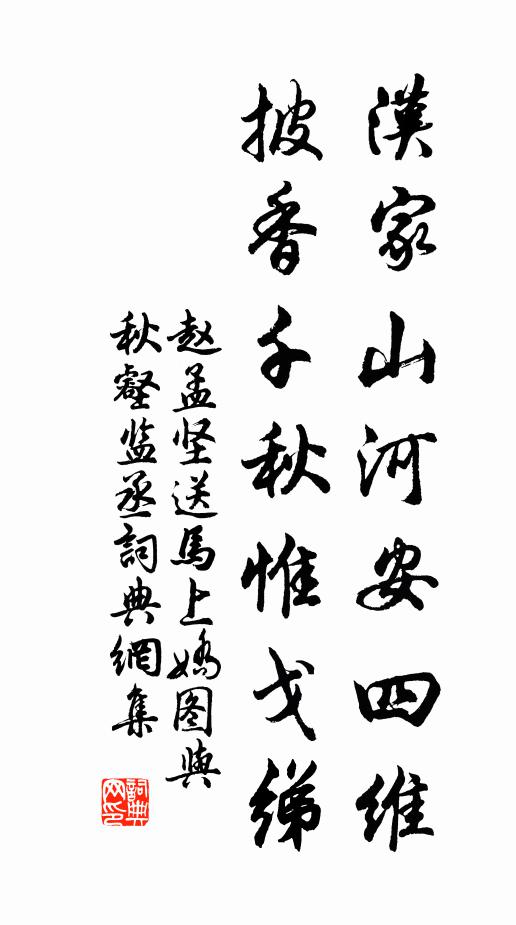 漢家山河安四維
披香千秋惟戈綈
赵孟坚送馬上嬌图與
秋壑监丞詞典網集
詞典网印